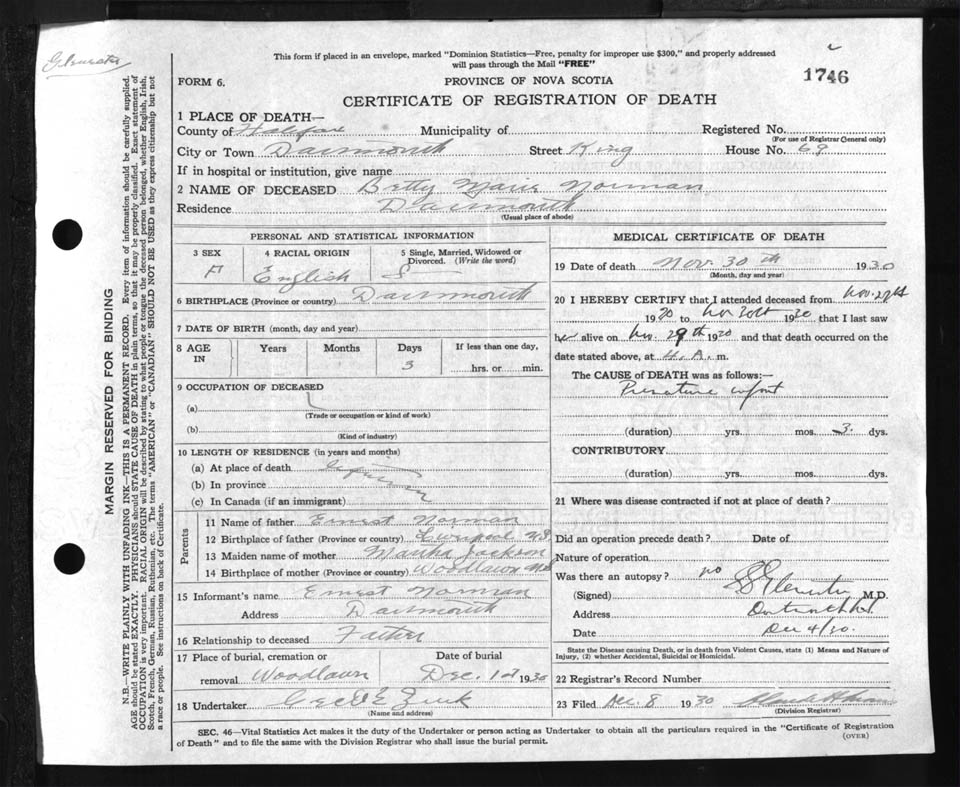 This form if placed in an envelope, marked "Dominion Statistics—Free, penalty for improper use $300," and properly addressed
will pass through the Mail "FREE"
1746
FORM 6.
PROVINCE OF NOVA SCOTIA
CERTIFICATE OF REGISTRATION OF DEATH
1 PLACE OF DEATH—
County of Halifax Municipality of Registered No.
(For use of Registrar General only)
City or Town Dartmouth Street King House No. 69
If in hospital or institution, give name
2 NAME OF DECEASED Betty Marie Norman
Residence Dartmouth
(Usual place of abode)
PERSONAL AND STATISTICAL INFORMATION
3 SEX 4 RACIAL ORIGIN 5 Single, Married, Widowed or
Divorced. (Write the word)
F English S
6 BIRTHPLACE (Province or country) Dartmouth
7 DATE OF BIRTH (month, day and year)
8 AGE IN Years Months Days If less than one day,
3 hrs. or min.
9 OCCUPATION OF DECEASED
(a)
(Trade or occupation or kind of work)
(b)
(Kind of industry)
10 LENGTH OF RESIDENCE (in years and months)
(a) At place of death
(b) In province
(c) In Canada (if an immigrant)
Parents
11 Name of father Ernest Norman
12 Birthplace of father (Province or country) Liverpool N.S.
13 Maiden name of mother Martha Jackson
14 Birthplace of mother (Province or country) Woodlawn N.S.
15 Informant's name Ernest Norman
Address Dartmouth
16 Relationship to deceased Father
17 Place of burial, cremation or Date of burial
removal Woodlawn Dec. 1st 1930
18 Undertaker Zink
(Name and address)
MEDICAL CERTIFICATE OF DEATH
19 Date of death Nov. 30th 1930
(Month, day and year)
20 I HEREBY CERTIFY that I attended deceased from Nov.
1930 to Nov 30th 1930 that I last saw
her alive on Nov. 29th 1930 and that death occurred on the
date stated above, at 4. A. m.
The CAUSE of DEATH was as follows:—
Premature infant
(duration) yrs. mos. 3 dys.
CONTRIBUTORY
(duration) yrs. mos. dys.
21 Where was disease contracted if not at place of death?
Did an operation precede death? Date of
Nature of operation
Was there an autopsy? no
(Signed) M.D.
Address Dartmouth N.S.
Date Dec 4/30.
State the Disease causing Death, or in death from Violent Causes, state (1) Means and Nature of
Injury, (2) whether Accidental, Suicidal or Homicidal.
22 Registrar's Record Number
23 Filed Dec. 8 1930
(Division Registrar)
SEC. 46—Vital Statistics Act makes it the duty of the Undertaker or person acting as Undertaker to obtain all the particulars required in the "Certificate of Registration
of Death" and to file the same with the Division Registrar who shall issue the burial permit.
(OVER)
MARGIN RESERVED FOR BINDING
N.B.—WRITE PLAINLY WITH UNFADING INK—THIS IS A PERMANENT RECORD. Every item of information should be carefully supplied.
AGE should be stated EXACTLY. PHYSICIANS should STATE CAUSE OF DEATH in plain terms, so that it may be properly classified. Exact statement of
OCCUPATION is very important. RACIAL ORIGIN will be described by stating to what people or tongue the deceased person belonged, whether English, Irish,
Scotch, French, German, Russian, Ruthenian, etc. The terms "AMERICAN" or "CANADIAN" SHOULD NOT BE USED as they express citizenship but not
a race or people. See instructions on back of Certificate.